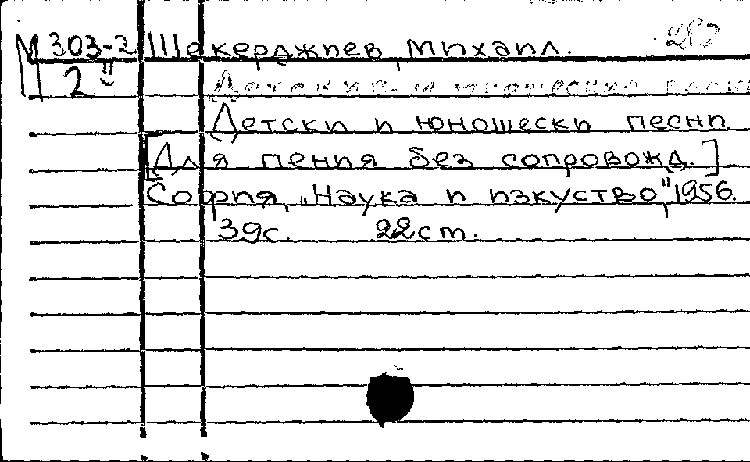 М 303-2 Шекерджиев, Михаил. 287
2
Детски и юношески песни
Детски и юношески песни
[Для пения без сопровожд.]
София, „Наука и изкуство“, 1956.
39с. 22 cm.